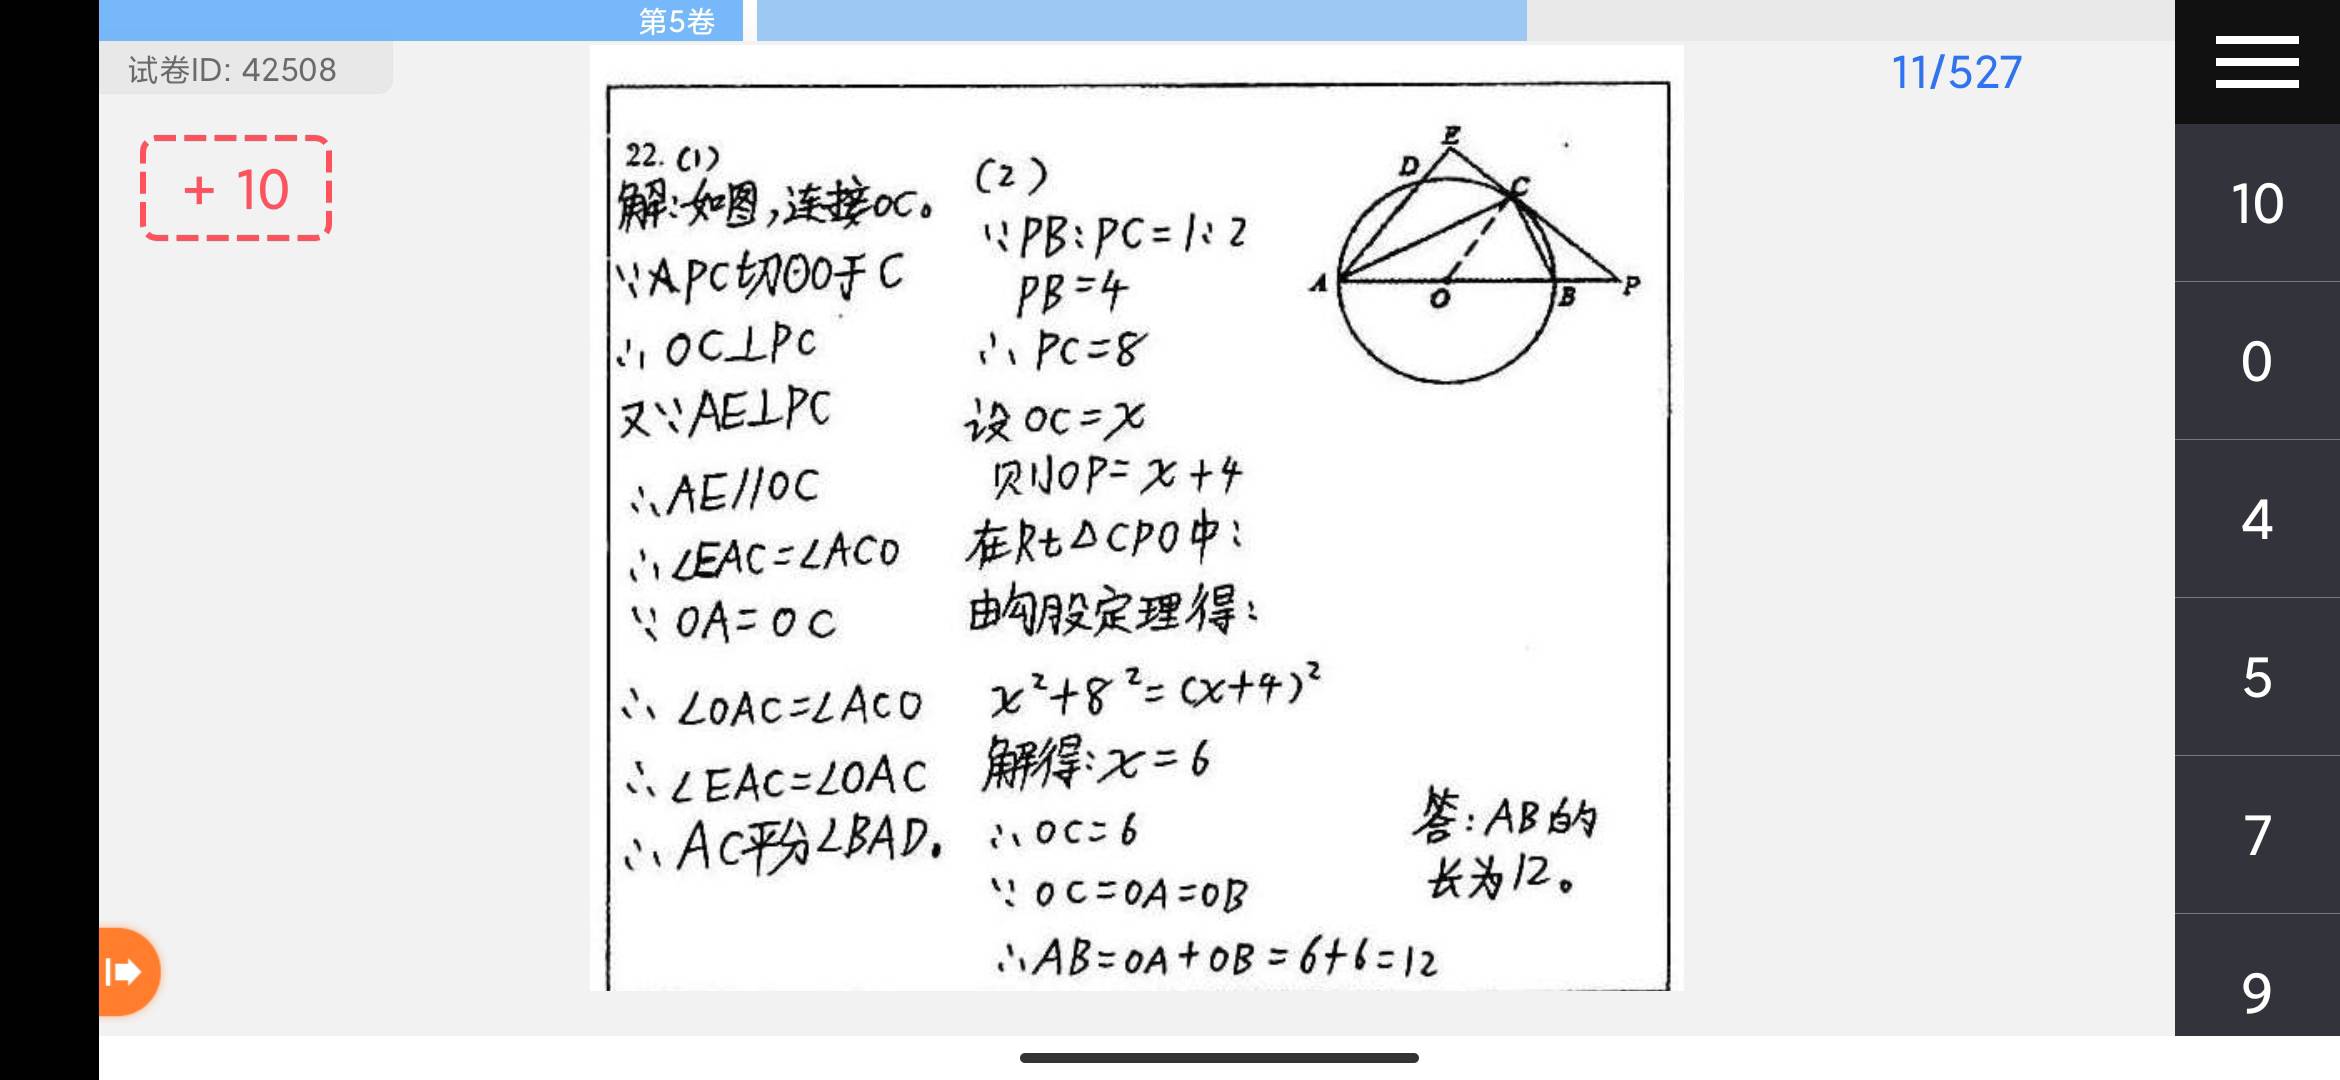 第5卷
试卷ID: 42508
11/527
+ 10
22. (1)
解:如图,连接OC。
∵APC切⊙O于C
∴OC⊥PC
又∵AE⊥PC
∴AE//OC
∴∠EAC=∠ACO
∵OA=OC
∴∠OAC=∠ACO
∴∠EAC=∠OAC
∴AC平分∠BAD。
(2)
∵PB:PC=1:2
PB=4
∴PC=8
设OC=x
则OP=x+4
在Rt△CPO中:
由勾股定理得:
x²+8²=(x+4)²
解得:x=6
∴OC=6
∵OC=OA=OB
∴AB=OA+OB=6+6=12
答:AB的
长为12。
E
D
C
A
O
B
P
10
0
4
5
7
9